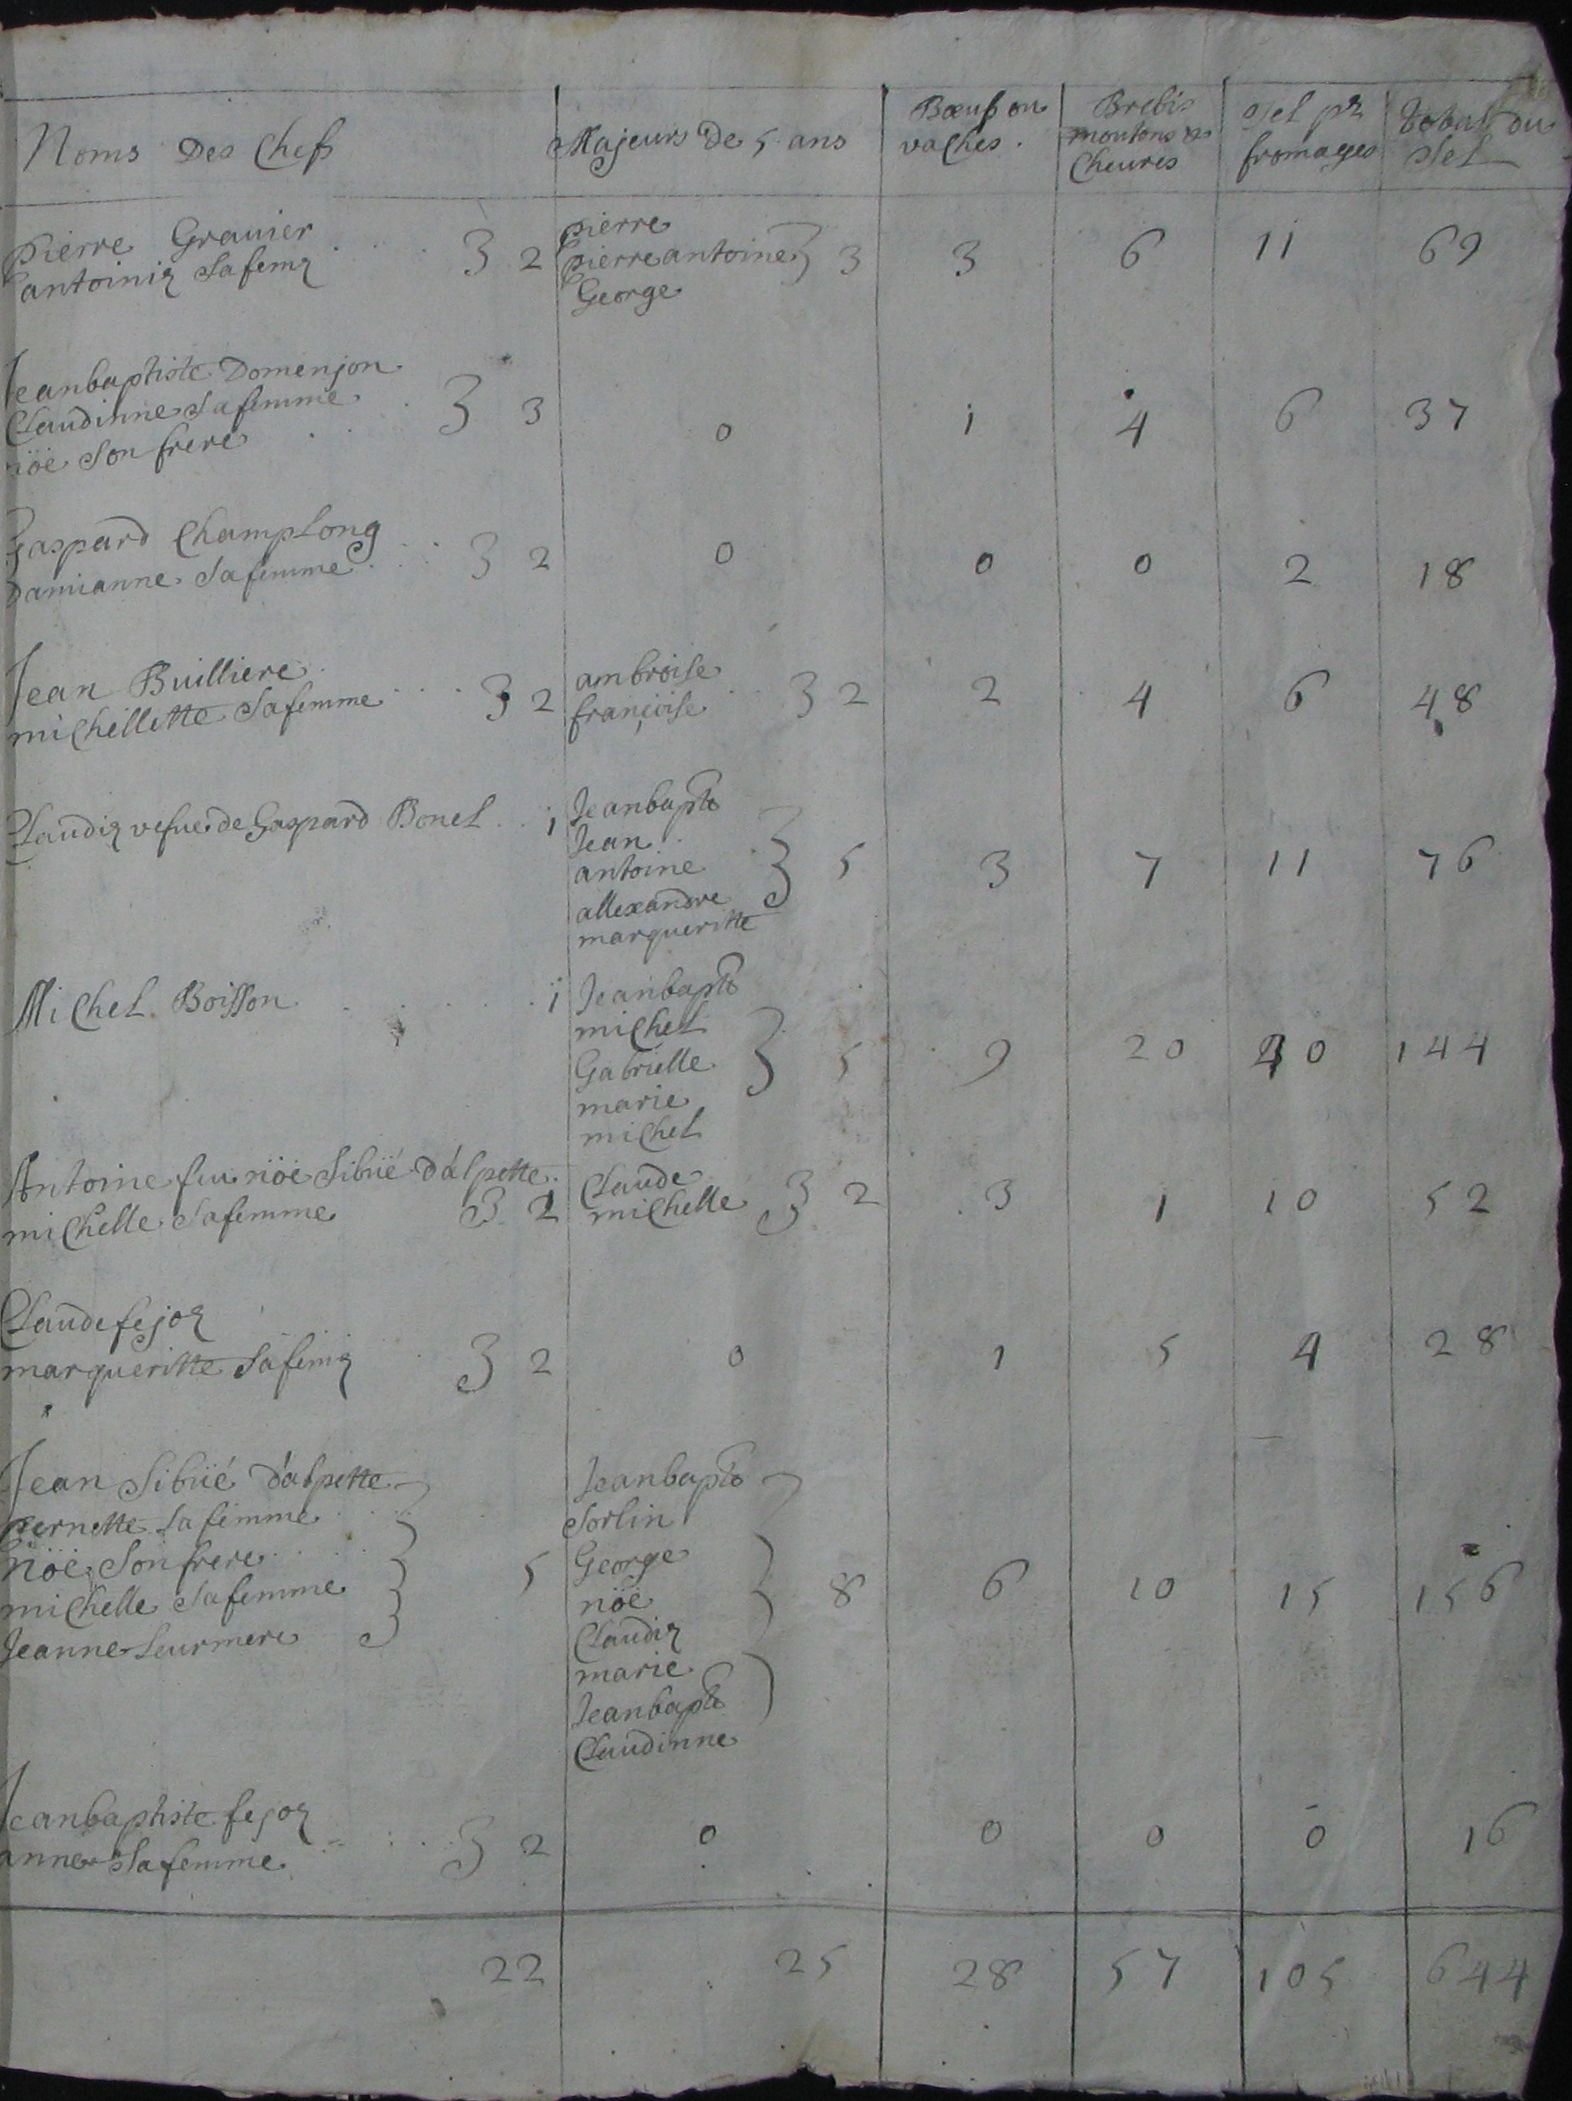 Noms Des Chefs Majeurs De 5 ans Bœufs ou vaches. Brebis moutons & Cheures Sel pr fromages Total du Sel
Pierre Grauier
antoinia Safema 3 2 pierre
pierre antoine
George 3 3 6 11 69
Jeanbaptiste Domenjon
Claudinne Safemme
nöe Son frere 3 3 0 1 4 6 37
Gaspard Champlong
Damianne Safemme 3 2 0 0 0 2 18
Jean Builliere
michellette Safemme 3 2 ambroise
françoise 3 2 2 4 6 48
Claudia vefue de Gaspard Bonel 1 Jeanbapte
Jean
antoine
allexandre
margueritte 5 3 7 11 76
Michel Boisson 1 Jeanbapte
michel
Gabrielle
marie
michel 5 9 20 40 144
Antoine feu nöe Sibüé d'alpette
michelle Safemme 3 2 Claude
michelle 3 2 3 1 10 52
Claude fejoz
margueritte Safema 3 2 0 1 5 4 28
Jean Sibüé d'alpette
pernette Safemme
nöe Son frere
michelle Safemme
Jeanne Leur mere 5 Jeanbapte
Sorlin
George
nöe
Claudia
marie
Jeanbapte
Claudinne 8 6 10 15 156
Jeanbaptiste fejoz
anne Safemme 3 2 0 0 0 0 16
22 25 28 57 105 644